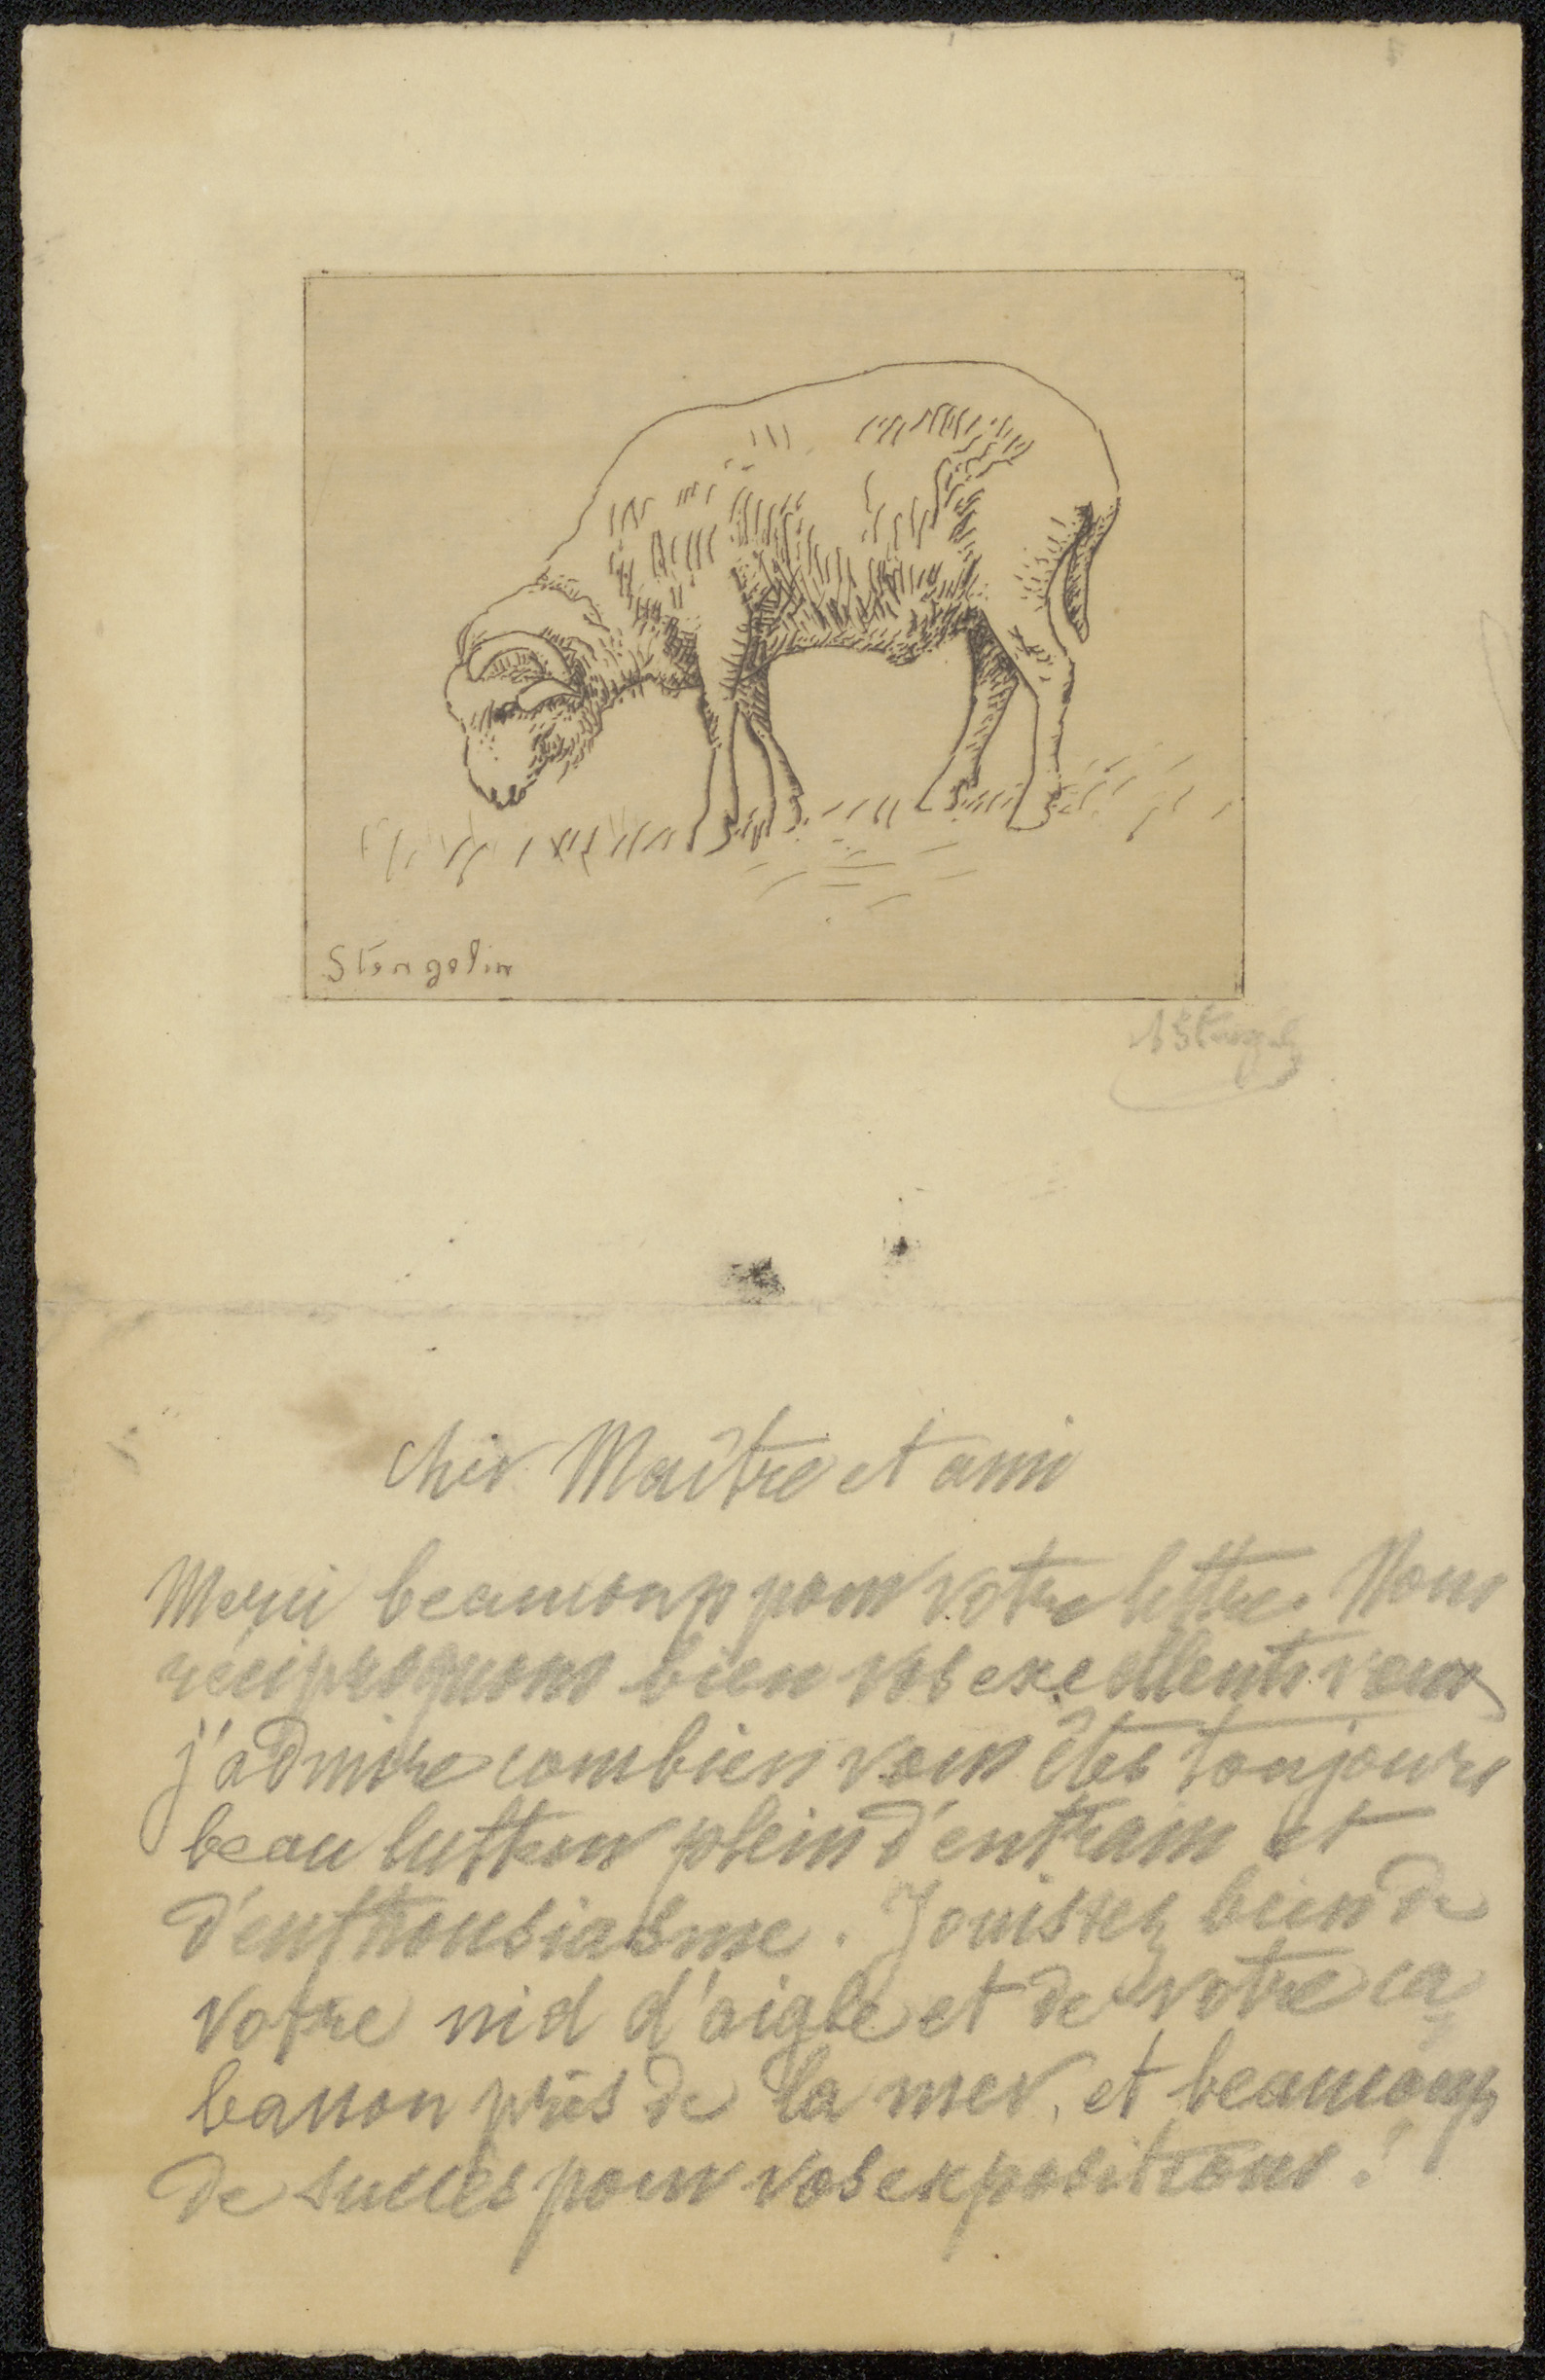 Stengelin
AStengelin
Cher Maître et ami
Merci beaucoup pour votre lettre. Nous
réciproquons bien vos excellents vœux
j'admire combien vous êtes toujours
beau lutteur plein d'entrain et
d'enthousiasme. Jouissez bien de
votre nid d'aigle et de votre ca
banon près de la mer, et beaucoup
de succès pour vos expositions!